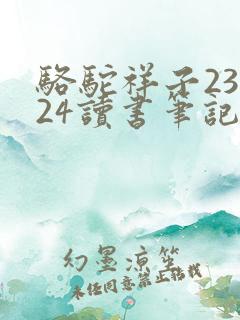 駱駝祥子23
24讀書筆記
幻墨涼笙
未经同意禁止转载